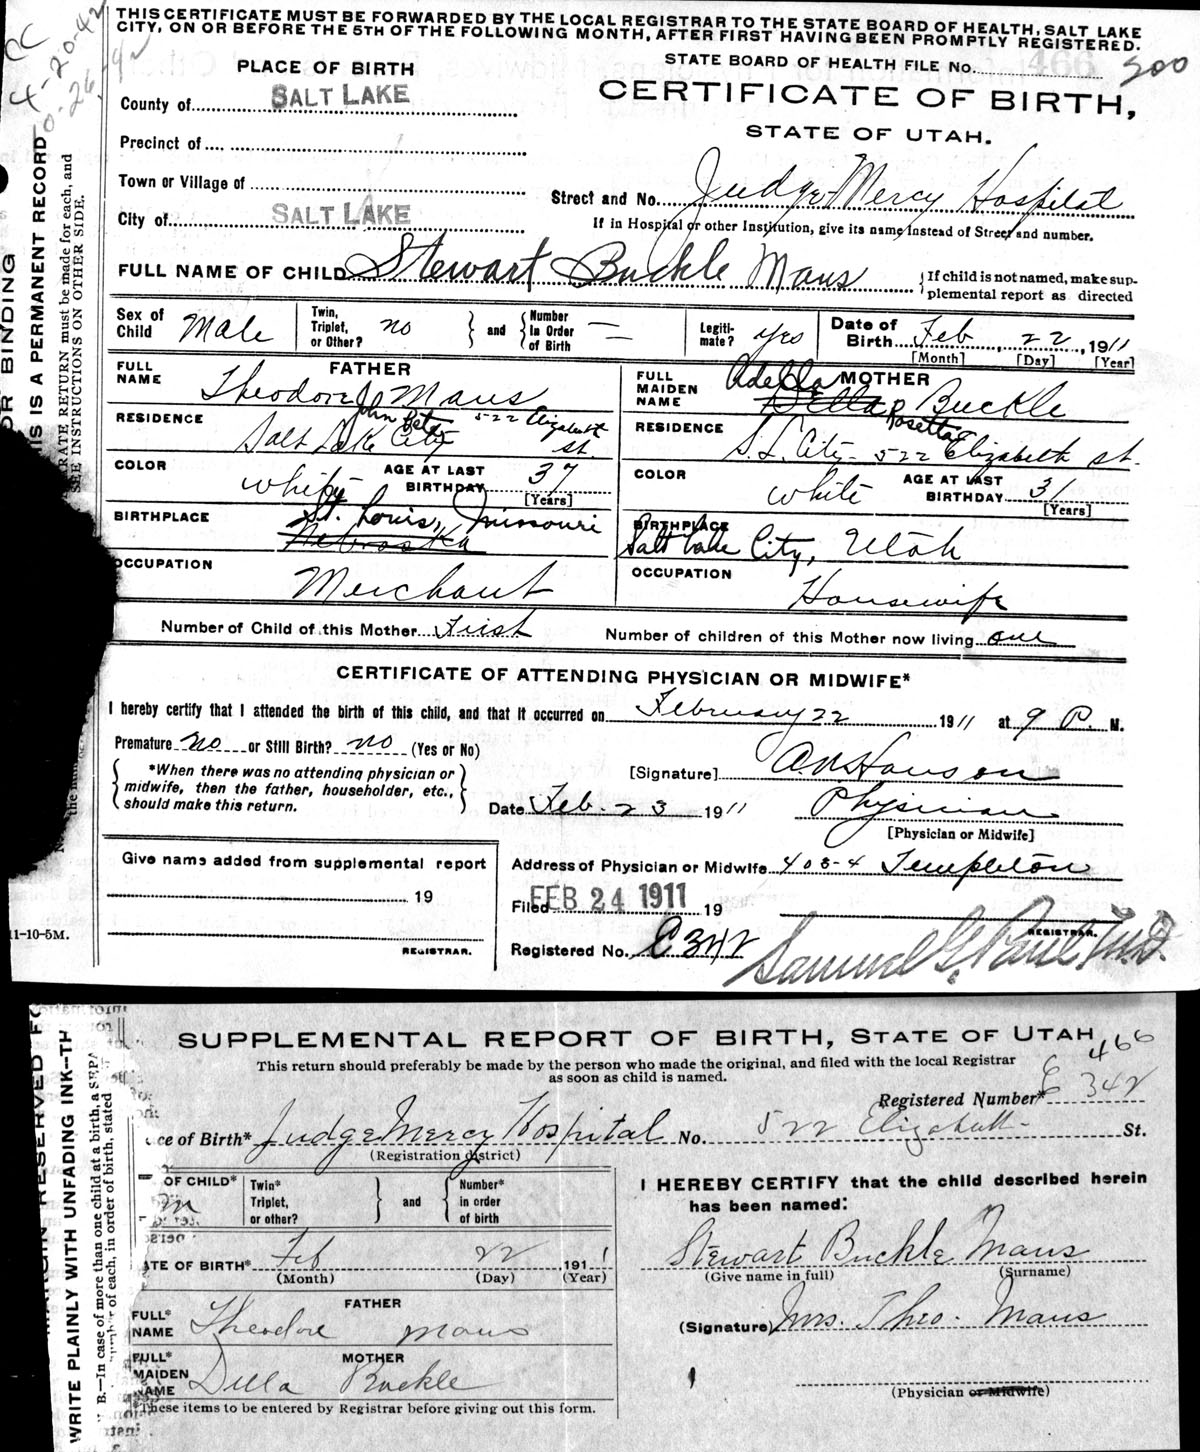 THIS CERTIFICATE MUST BE FORWARDED BY THE LOCAL REGISTRAR TO THE STATE BOARD OF HEALTH, SALT LAKE
CITY, ON OR BEFORE THE 5TH OF THE FOLLOWING MONTH, AFTER FIRST HAVING BEEN PROMPTLY REGISTERED.
STATE BOARD OF HEALTH FILE No. 466
300
PLACE OF BIRTH
CERTIFICATE OF BIRTH,
STATE OF UTAH.
County of SALT LAKE
Precinct of
Town or Village of
City of SALT LAKE
Street and No. Judge Mercy Hospital
If in Hospital or other Institution, give its name instead of Street and number.
FULL NAME OF CHILD Stewart Buckle Maus
If child is not named, make sup-
plemental report as directed
Sex of Child Male
Twin, Triplet, or Other? no
and Number in Order of Birth —
Legiti-mate? yes
Date of Birth Feb 22, 1911
[Month] [Day] [Year]
FATHER
FULL NAME Theodore J. Maus
John Peter
RESIDENCE Salt Lake City 522 Elizabeth St.
COLOR white
AGE AT LAST BIRTHDAY 37
[Years]
BIRTHPLACE St. Louis, Missouri
Nebraska
OCCUPATION Merchant
MOTHER
FULL MAIDEN NAME Adella Della R Buckle
Rosetta
RESIDENCE S. L. City - 522 Elizabeth St.
COLOR white
AGE AT LAST BIRTHDAY 31
[Years]
BIRTHPLACE
Salt Lake City, Utah
OCCUPATION Housewife
Number of Child of this Mother First
Number of children of this Mother now living one
CERTIFICATE OF ATTENDING PHYSICIAN OR MIDWIFE*
I hereby certify that I attended the birth of this child, and that it occurred on February 22 1911 at 9 P. M.
Premature no or Still Birth? no (Yes or No)
*When there was no attending physician or
midwife, then the father, householder, etc.,
should make this return.
[Signature] Hanson
Date Feb. 23 1911
Physician
[Physician or Midwife]
Give name added from supplemental report
19
REGISTRAR.
Address of Physician or Midwife 403-4 Templeton
Filed FEB 24 1911 19
REGISTRAR.
Registered No. C342
Samuel G. Paul, M.D.
11-10-5M.
SUPPLEMENTAL REPORT OF BIRTH, STATE OF UTAH
466
This return should preferably be made by the person who made the original, and filed with the local Registrar
as soon as child is named.
Registered Number* C 342
ce of Birth* Judge Mercy Hospital No. 522 Elizabeth St.
(Registration district)
OF CHILD* M
Twin* Triplet, or other?
and Number* in order of birth
ATE OF BIRTH* Feb 22 1911
(Month) (Day) (Year)
FATHER
FULL* NAME Theodore Maus
MOTHER
FULL* MAIDEN NAME Della Buckle
*These items to be entered by Registrar before giving out this form.
I HEREBY CERTIFY that the child described herein
has been named:
Stewart Buckle Maus
(Give name in full) (Surname)
(Signature) Mrs. Theo. Maus
(Physician or Midwife)
4-20-42
OR BINDING
IS IS A PERMANENT RECORD
ARATE RETURN must be made for each, and
SEE INSTRUCTIONS ON OTHER SIDE.
MARGIN RESERVED FO
WRITE PLAINLY WITH UNFADING INK—TH
B.—In case of more than one child at a birth, a SEPA
of each, in order of birth, stated